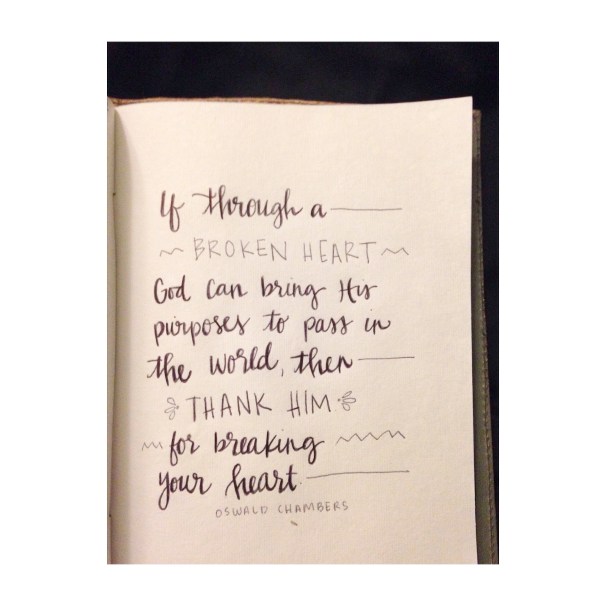 If through a
BROKEN HEART
God can bring His
purposes to pass in
the world, then
THANK HIM
for breaking
your heart.
OSWALD CHAMBERS